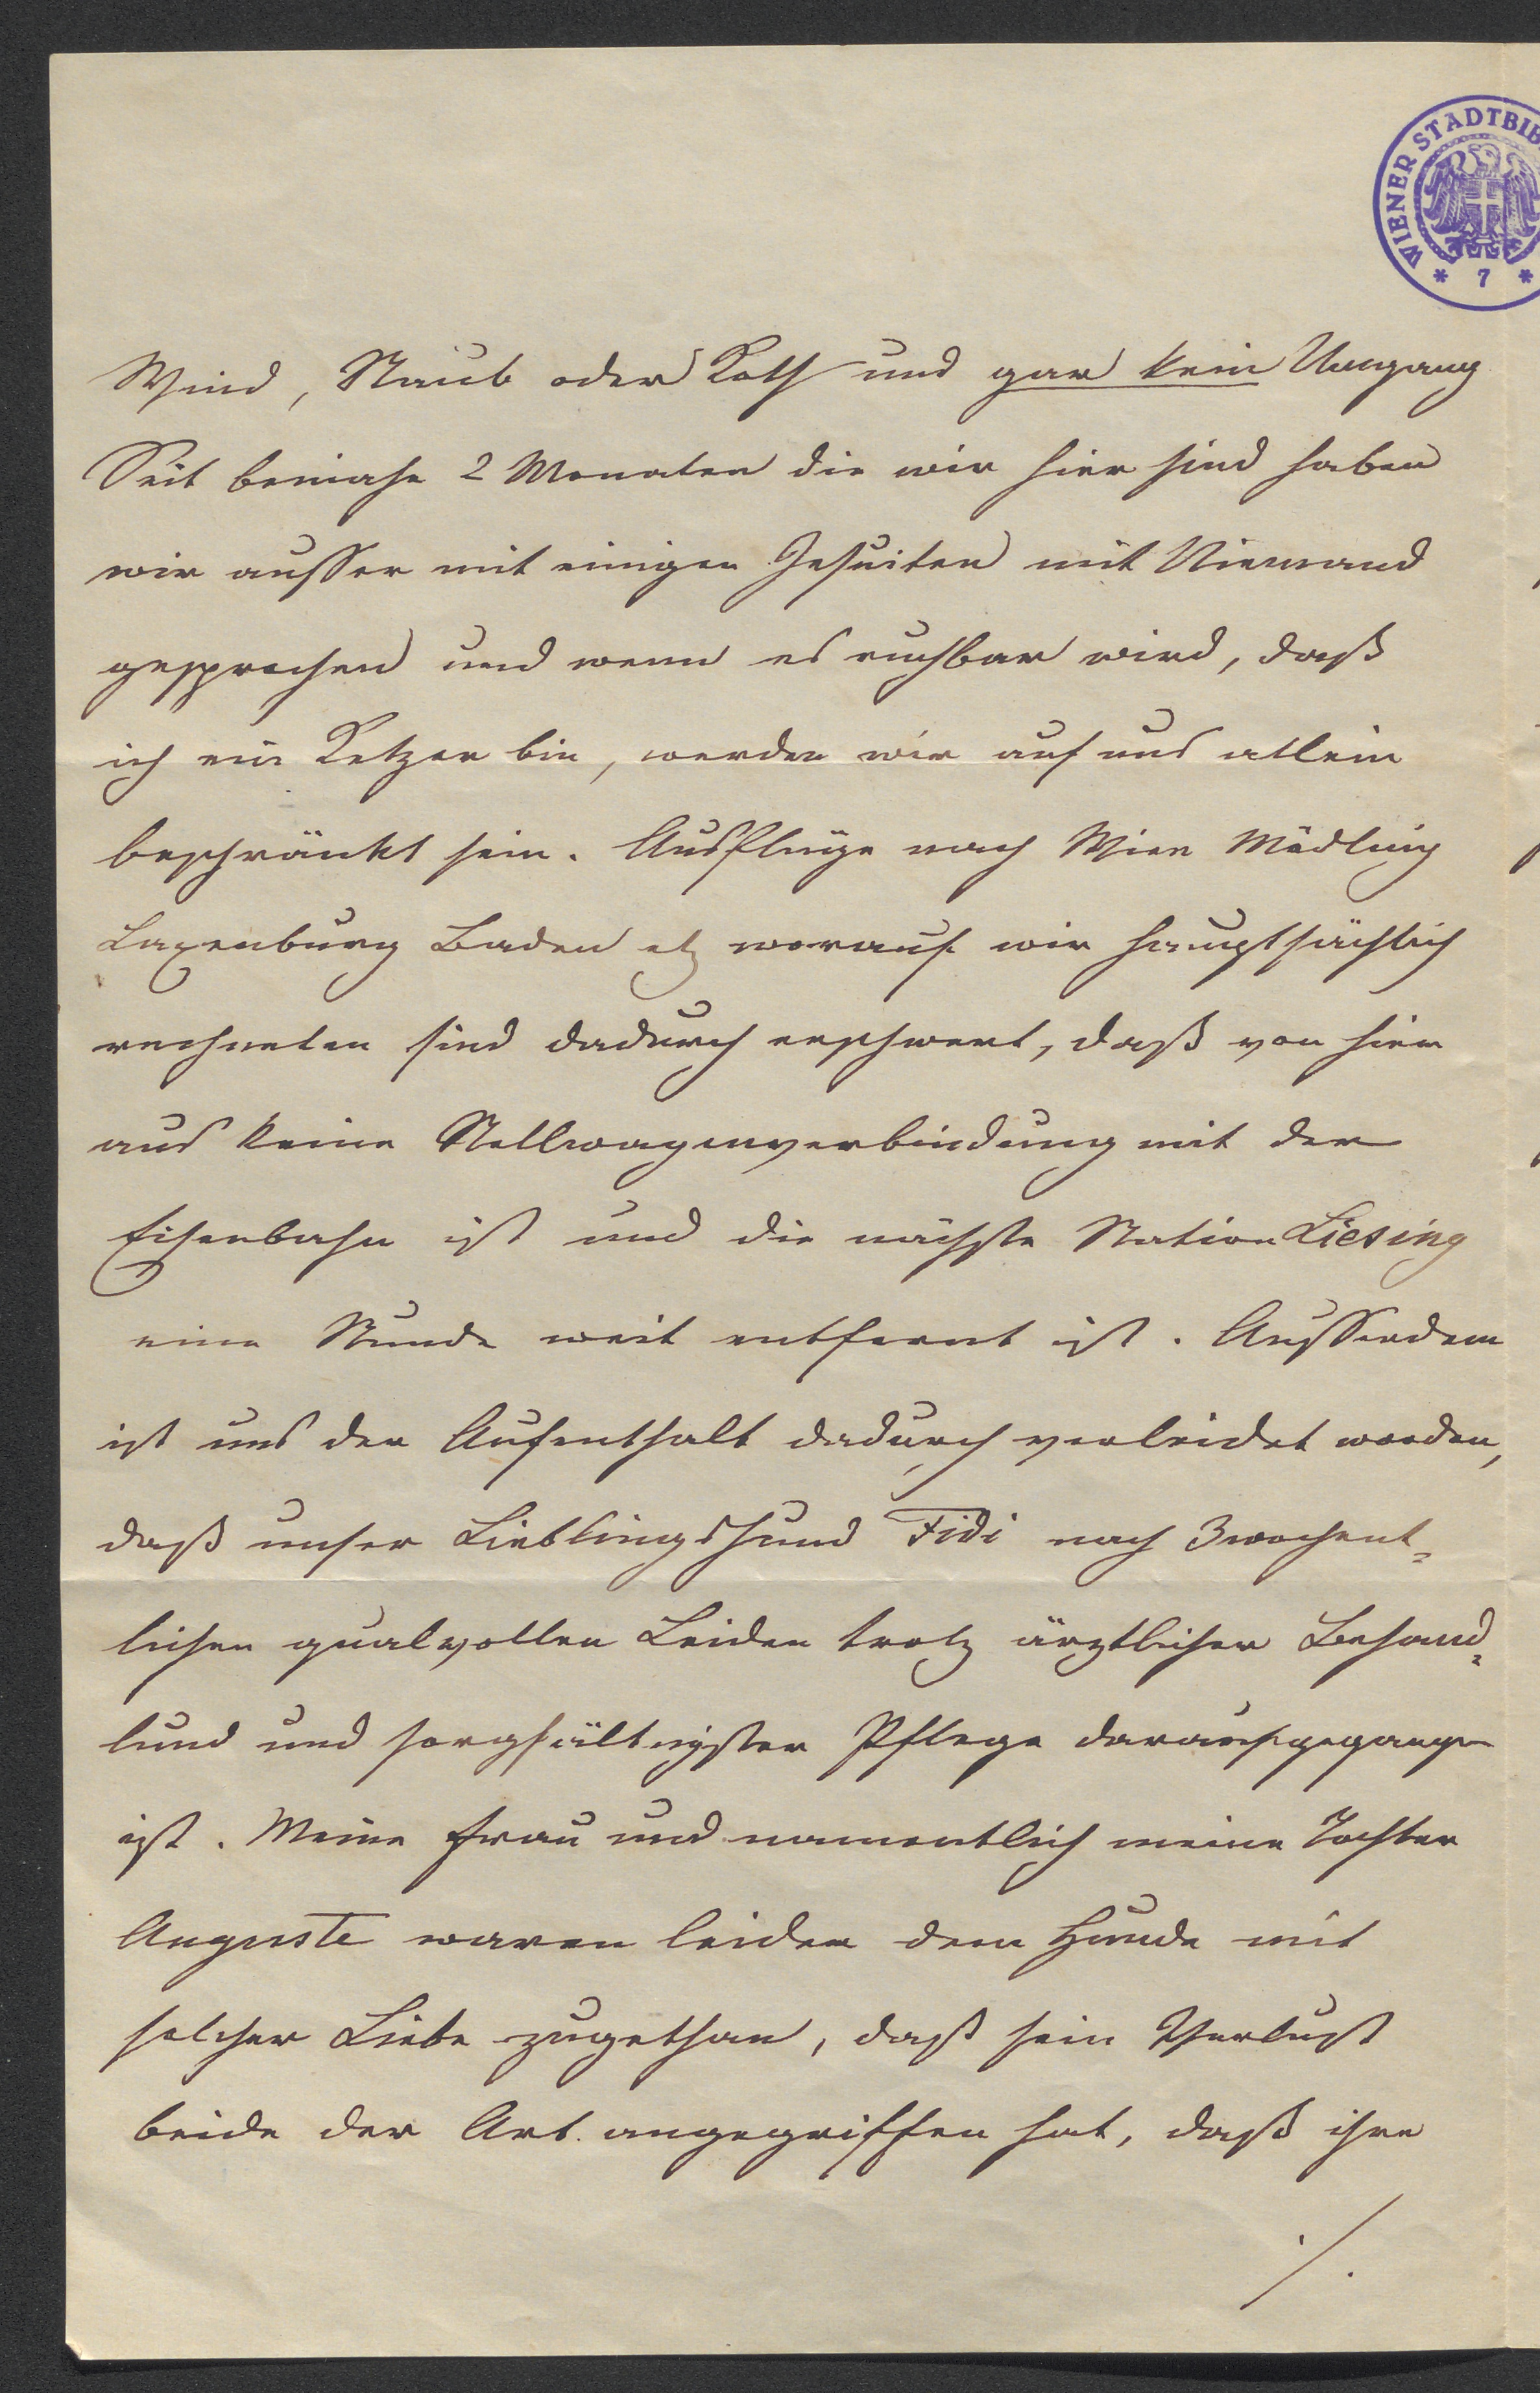 WIENER STADTBIB
* 7 *
Wind, Staub oder Koth und gar kein Umgang
Seit beinahe 2 Monaten die wir hier sind haben
wir ausser mit einigen Jesuiten mit Niemand
gesprochen und wenn es ruchbar wird, daß
ich ein Ketzer bin, werden wir auf uns allein
beschränkt sein. Ausflüge nach Wien Mödling
Laxenburg Baden etz worauf wir hauptsächlich
rechneten sind dadurch erschwert, daß von hier
aus keine Stellwagenverbindung mit der
Eisenbahn ist und die nächste Station Liesing
eine Stunde weit entfernt ist. Ausserdem
ist uns der Aufenthalt dadurch verleidet worden,
daß unser Lieblingshund Fidi nach 3wochent-
lichen qualvollen Leiden trotz ärztlicher Behand-
lund und sorgfältigster Pflege daraufgegangen
ist. Meine Frau und namentlich meine Tochter
Auguste waren leider dem Hunde mit
solcher Liebe zugethan, daß sein Verlust
beide der Art angegriffen hat, daß ihre
./.